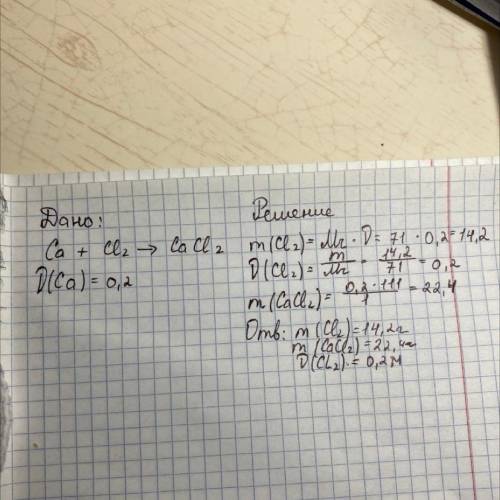 Дано:
Ca + Cl2 → CaCl2
D(Ca) = 0,2
Решение
m(Cl2) = Mr · D = 71 · 0,2 = 14,2
D(Cl2) = m/Mr = 14,2/71 = 0,2
m(CaCl2) = 0,2 · 111/1 = 22,4
Отв: m(Cl2) = 14,2г
m(CaCl2) = 22,4г
D(Cl2) = 0,2м